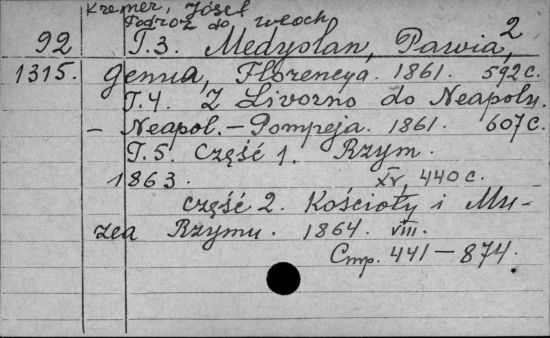 Kremer, Józef
Podróż do Włoch
2
92 T.3. Medyolan, Pawia,
1315. Genua, Florencya. 1861. 592 с.
T.4. Z Livorno do Neapolu.
– Neapol. – Pompeja. 1861. 607 с.
T.5. Część 1. Rzym.
1863. XV, 440 с.
Część 2. Kościoły i Mu-
zea Rzymu. 1864. VIII.
Стр. 441 – 874.